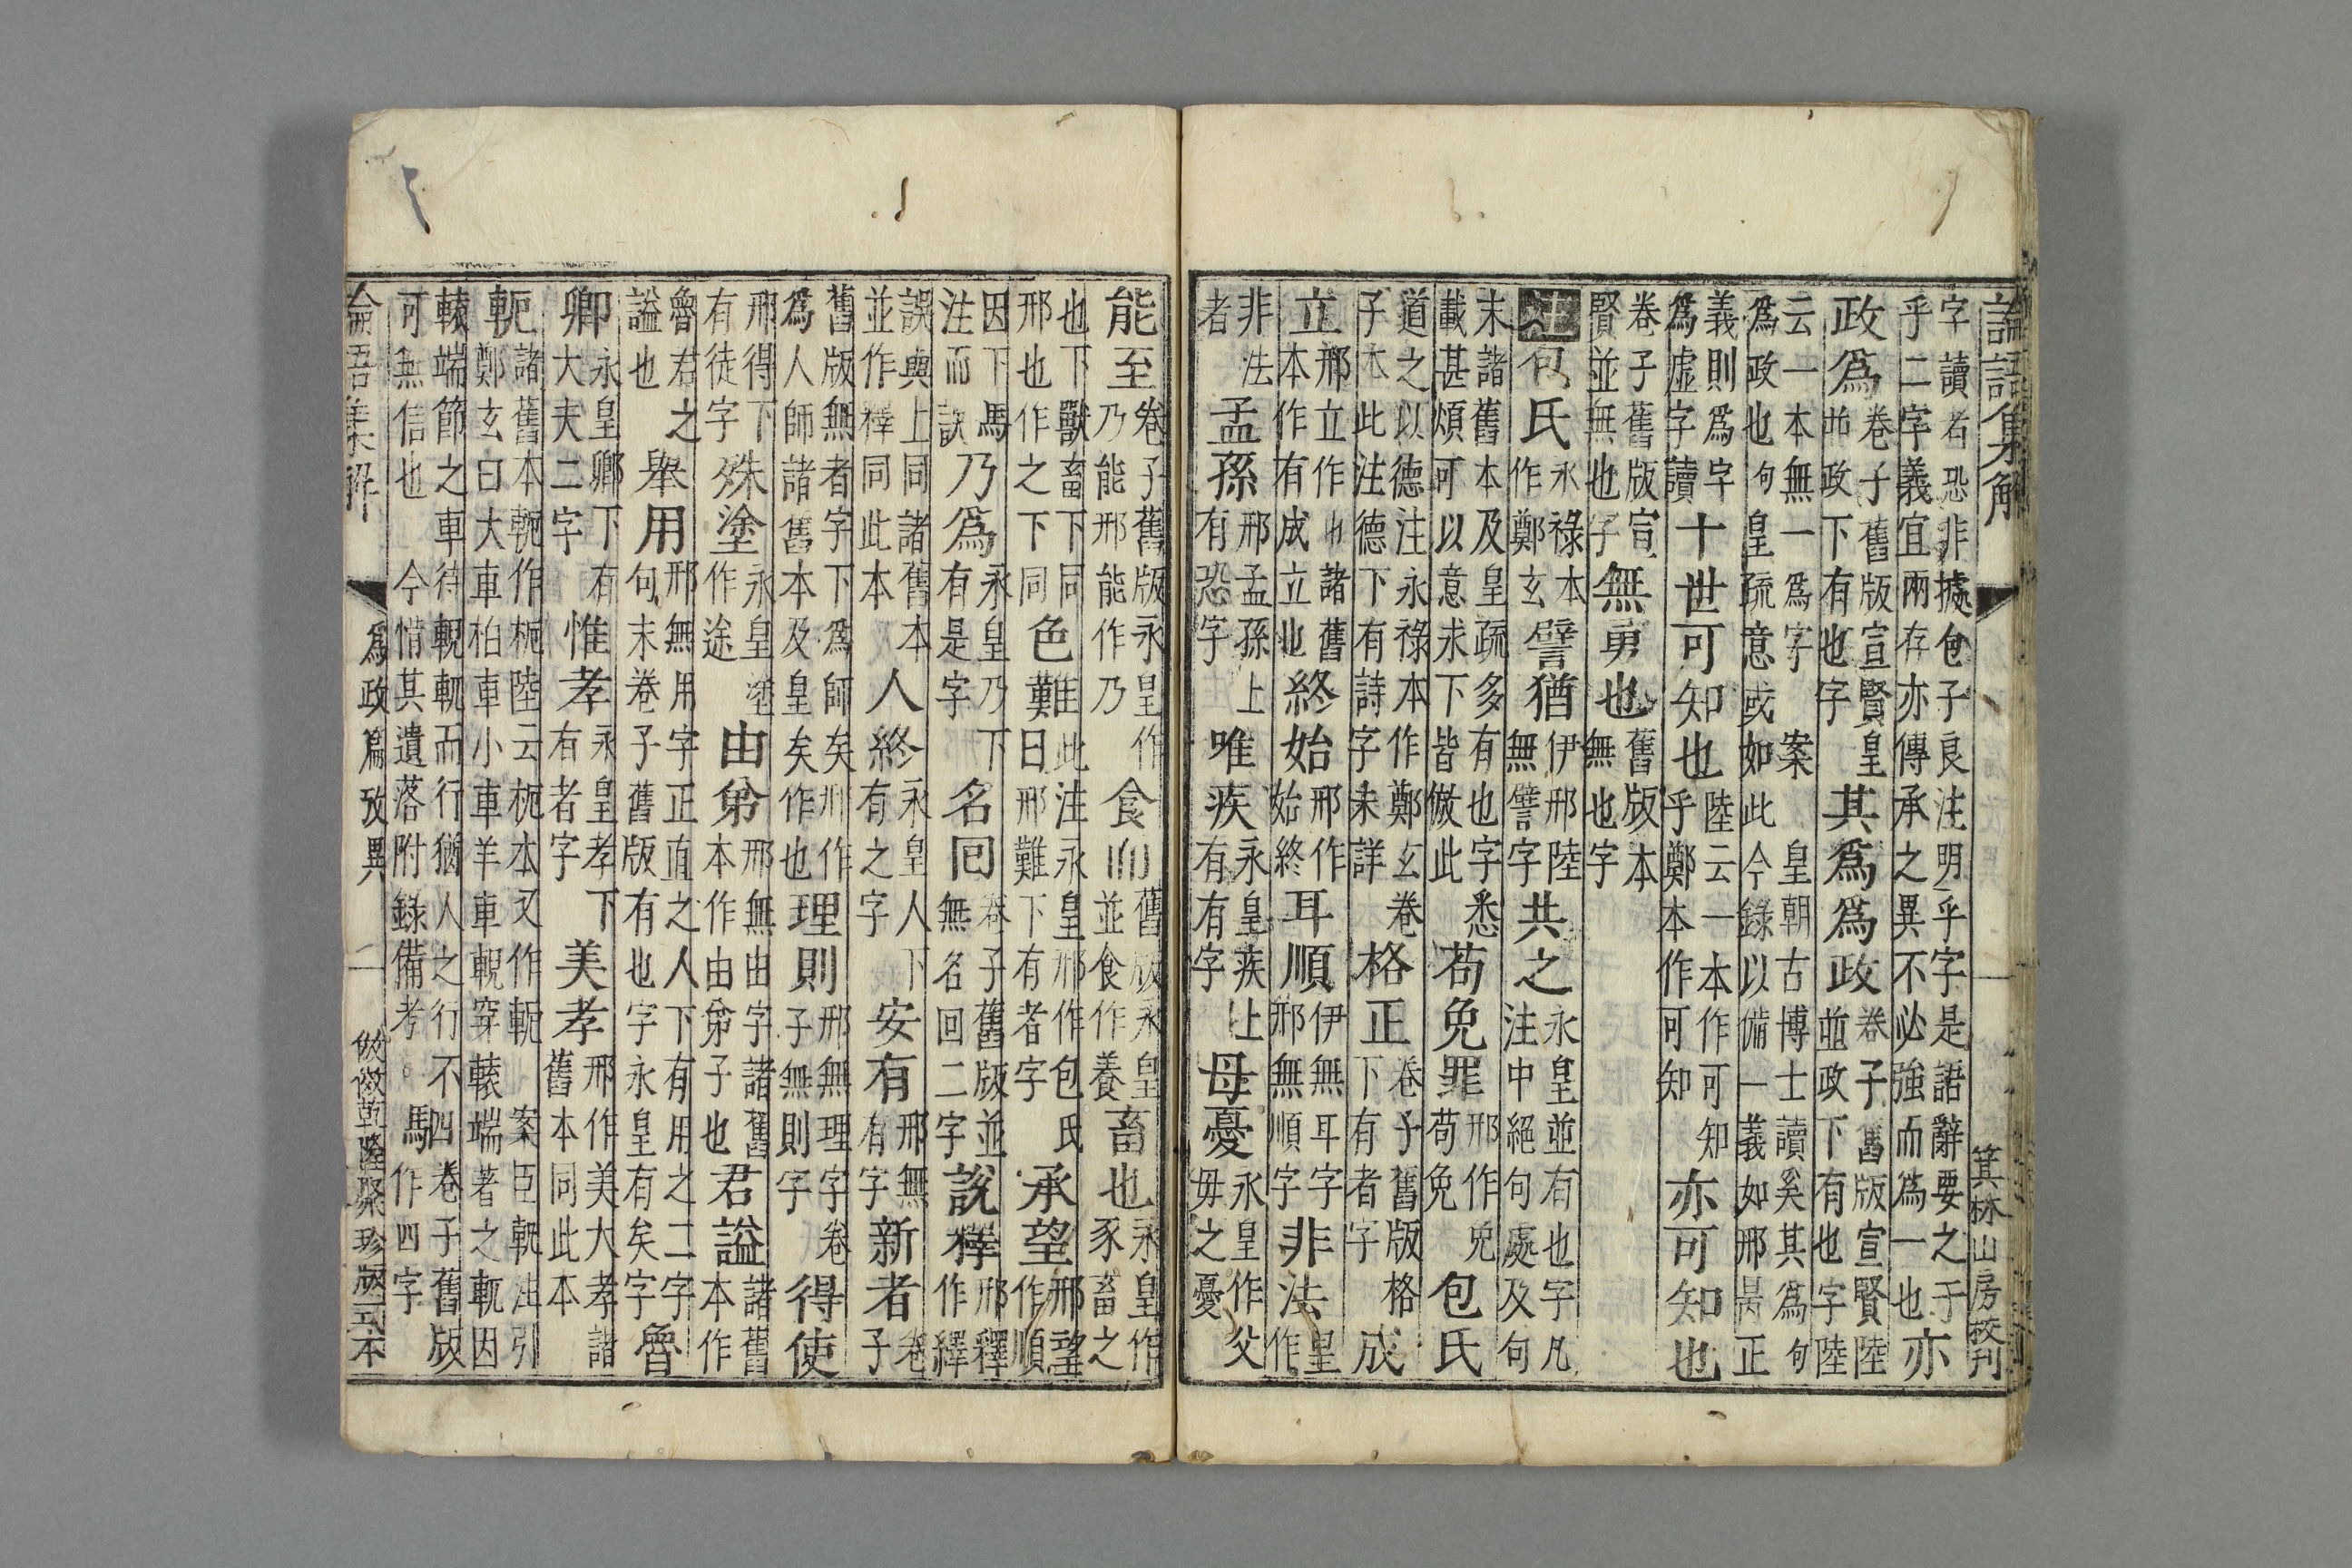 論語集解 一 箕林山房校刊
字讀者恐非據包子良注明乎字是語辭要之于乎二字義宜兩存亦傳承之異不必強而為一也亦
政為卷子舊版宣賢皇並政下有也字其為為政卷子舊版宣賢陸並政下有也字陸
云一本無一為字 案皇朝古博士讀奚其為句為政也句皇疏意或如此今錄以備一義如邢昺正
義則為字為虛字讀十世可知也陸云一本作可知乎鄭本作可知亦可知也
卷子舊版宣賢並無也字無勇也舊版本無也字
注包氏永祿本作鄭玄譬猶伊邢陸無譬字共之永皇並有也字凡注中絕句處及句
末諸舊本及皇疏多有也字悉載甚煩可以意求下皆倣此苟免罪邢作免苟免包氏
道之以德注永祿本作鄭玄卷子本此注德下有詩字未詳格正卷子舊版格下有者字成
立邢立作也諸舊本作有成立也終始邢作始終耳順伊無耳字邢無順字非法皇作
非法者孟孫邢孟孫上有恐字唯疾永皇疾上有有字母憂永皇作父毋之憂
能至卷子舊版永皇作乃能邢能作乃食而舊版永皇並食作養畜也永皇作豕畜之
也下獸畜下同邢也作之下同色難此注永皇邢作包氏曰邢難下有者字承望邢望作順
因下馬注而誤乃為永皇乃下有是字名回卷子舊版並無名回二字說釋邢釋作繹
誤與上同諸舊本並作釋同此本人終永皇人下有之字安有邢無有字新者卷子
舊版無者字下為師矣邢作為人師諸舊本及皇矣作也理則邢無理字卷子無則字得使
邢得下有徒字殊塗永皇塗作途由弟邢無由字諸舊本作由弟子也君謚諸舊本作
魯君之謚也舉用邢無用字正直之人下有用之二字句末卷子舊版有也字永皇有矣字魯
卿永皇卿下有大夫二字惟孝永皇孝下有者字美孝邢作美大孝諸舊本同此本
軛諸舊本軛作枙陸云枙本又作軛 案臣軏注引鄭玄曰大車柏車小車羊車輗穿轅端著之軏因
轅端節之車待輗軏而行猶人之行不可無信也 今惜其遺落附錄備考駟四卷子舊版作四字
論語集解 為政篇攷異 二 倣傚乾隆聚珍版式本